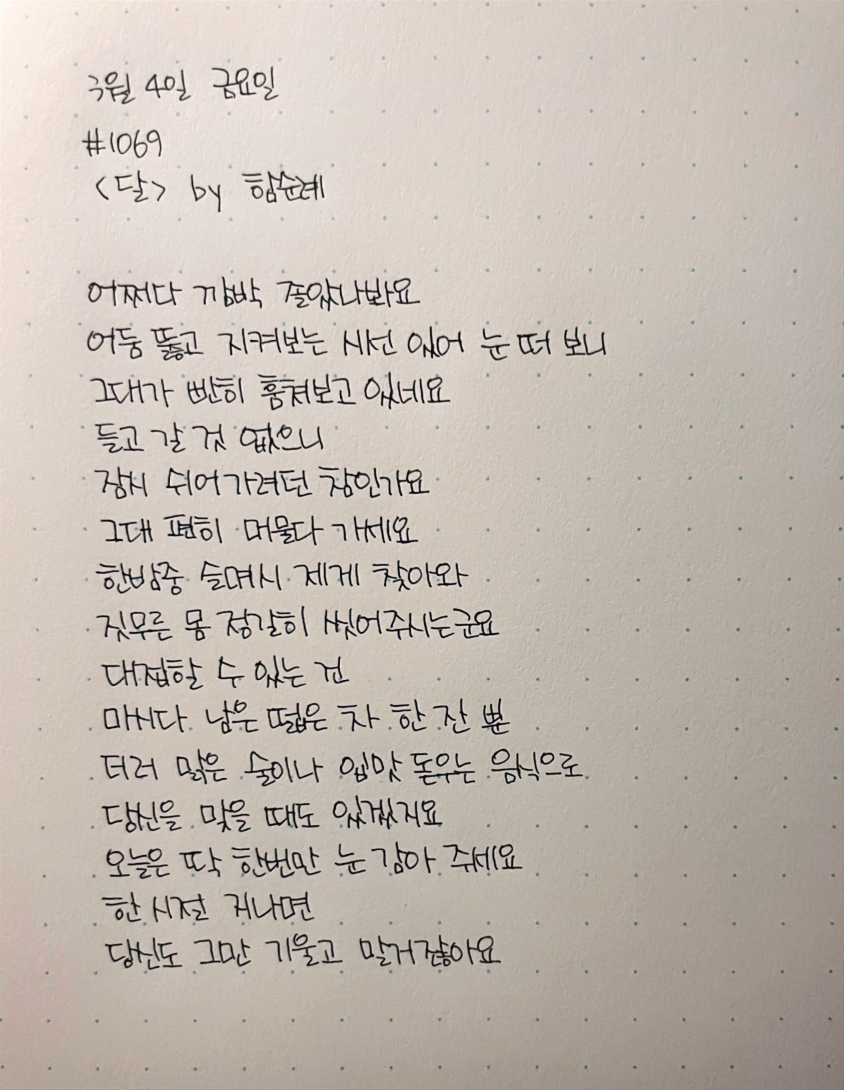 3월 4일 금요일
#1069
<달> by 함순례
어쩌다 깜박 졸았나봐요
어둠 뚫고 지켜보는 시선 있어 눈 떠 보니
그대가 빤히 훔쳐보고 있네요
들고 갈 것 없으니
잠시 쉬어가려던 참인가요
그대 편히 머물다 가세요
한밤중 슬며시 제게 찾아와
짓무른 몸 정갈히 씻어주시는군요
대접할 수 있는 건
마시다 남은 떫은 차 한 잔 뿐
더러 맑은 술이나 입맛 돋우는 음식으로
당신을 맞을 때도 있겠지요
오늘은 딱 한번만 눈 감아 주세요
한 시절 지나면
당신도 그만 기울고 말거잖아요